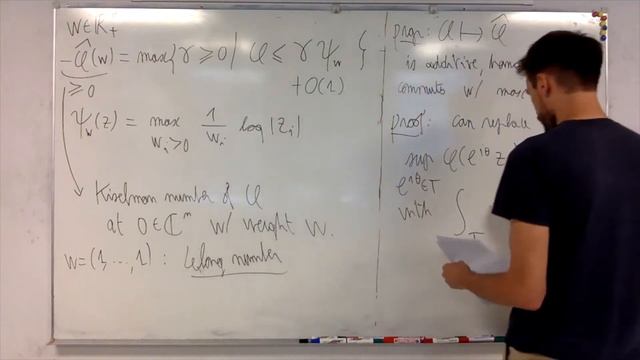 w ∈ ℝ₊
- φ̂(w) = max{ γ ≥ 0 | φ ≤ γ ψ_w + O(1) }
≥ 0
ψ_w(z) = max_{w_i>0} 1/w_i log|z_i|
Kiselman number of φ
at 0 ∈ ℂᵐ w/ weight w.
w = (1, ..., 1) : Lelong number
prop: φ ↦ φ̂
is additive,
commutes w/
proof: can replace
sup φ(e^{iθ} z
e^{iθ} ∈ T
with ∫_T